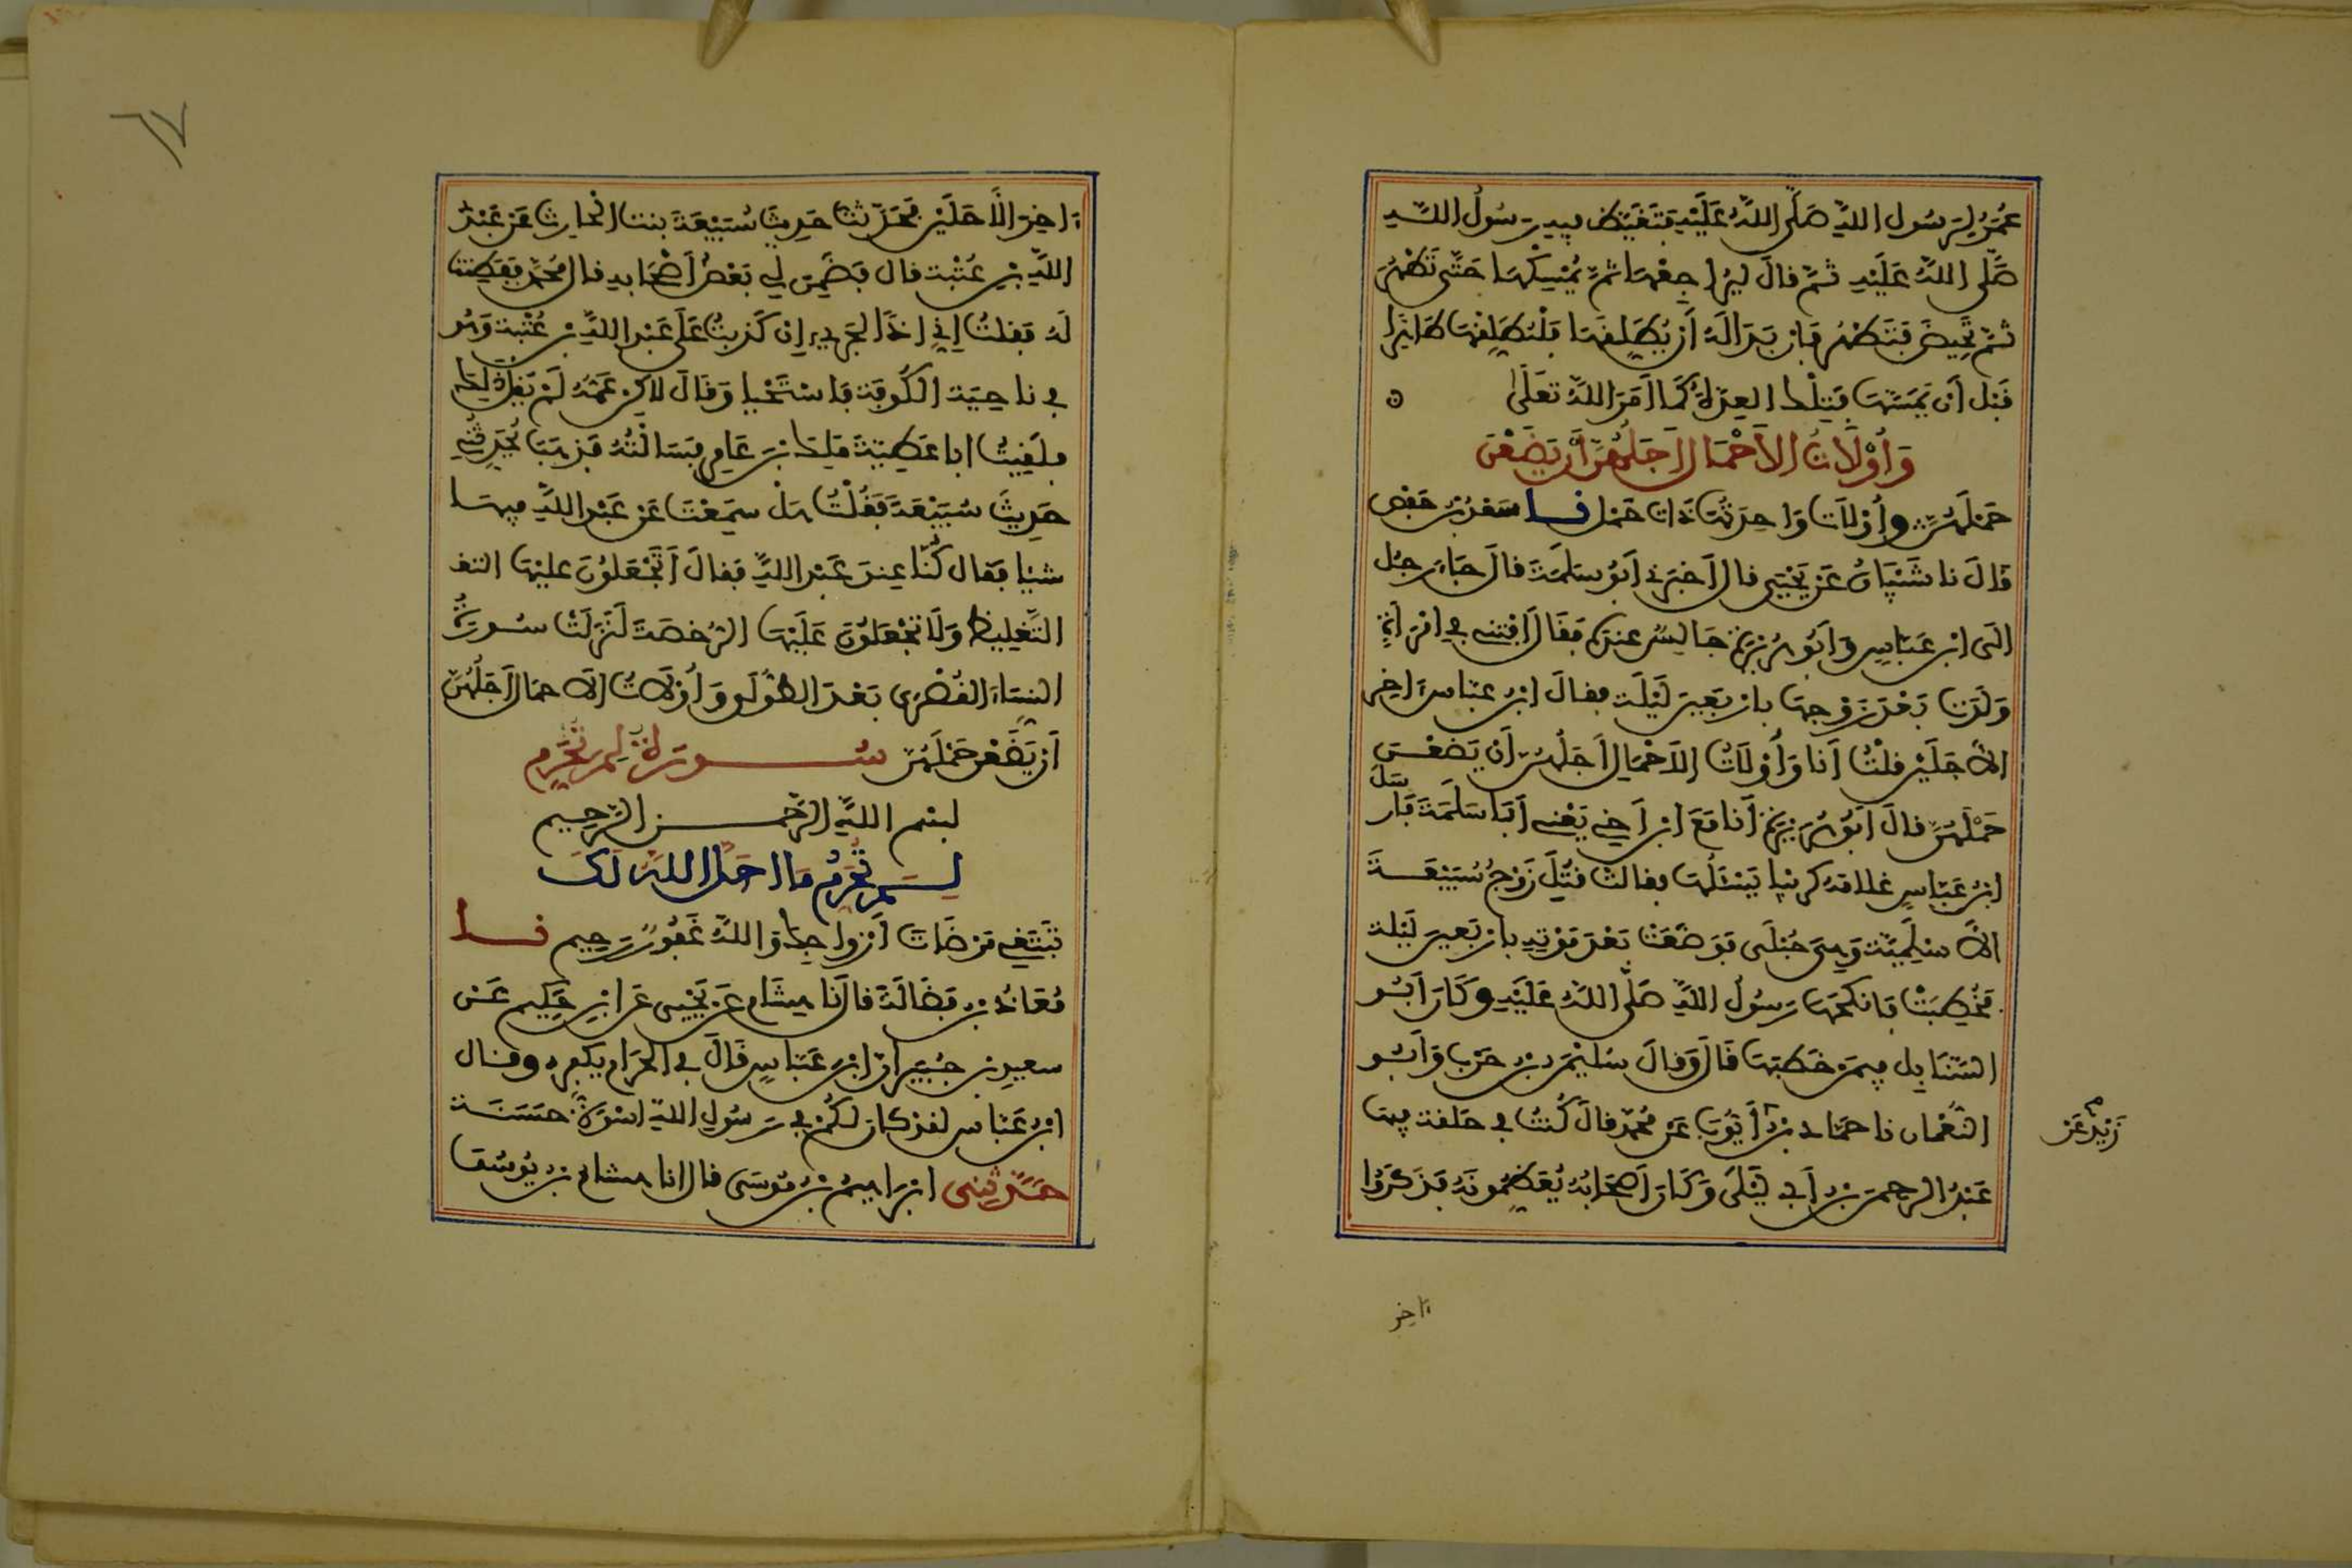 عُمَرُ لِرَسُول اللهِ صَلَّى اللهُ عَلَيْهِ فَتَغَيَّظ فِيهِ رَسُولُ اللهِ
صَلَّى اللهُ عَلَيْهِ ثُمَّ قَالَ لِيُرَاجِعْهَا ثُمَّ يُمْسِكْهَا حَتَّى تَطْهُرَ
ثُمَّ تَحِيضَ فَتَطْهُرَ فَإِن بَدَا لَهُ أَن يُطَلِّقَهَا فَلْيُطَلِّقْهَا طَاهِرًا
قَبْل أَن يَمَسَّهَا فَتِلْكَ العِدَّةُ كَمَا أَمَرَ اللهُ تَعَلَى ه
وَأُوْلَاتُ الاَحْمَالِ أَجَلُهُنَّ أَنْ يَضَعْنَ
حَمْلَهُنَّ وأُوْلَات وَاحِدَتُهَا ذَات حَمْل نا سَعْدُ بْنُ حَفْص
قَالَ نا شَيْبَانُ عَنْ يَحْيَى قَال أَخْبَرَنِي أَبُو سَلَمَةَ قَال جَاءَ رَجُل
الَى ابْنِ عَبَّاسٍ وَأَبُو هُرَيْرَةَ جَالِسٌ عِندَهُ فَقَالَ أَفْتِنِي فِي امْرَأَةٍ
وَلَدَت بَعْدَ زَوْجِهَا بِأَرْبَعِينَ لَيْلَة فقَالَ ابْنُ عَبَّاس ءَاخِر
الاَجَلَيْنِ قلْتُ أَنَا وَأُوْلَاتُ الاَحْمَالِ أَجَلُهُنَّ أَنْ يَضَعْنَ
حَمْلَهُنَّ قَالَ أَبُو هُرَيْرَةَ أَنَا مَعَ ابْنِ أَخِي يَعْنِي أَبَا سَلَمَةَ فَأَرْسَلَ
ابْنُ عَبَّاسٍ غلامَهُ كرَيْبا يَسْئَلُهَا فقَالَت قُتِلَ زَوْجُ سُبَيْعَةَ
الاَسْلَمِيَّة وَهِيَ حُبْلَى فَوَضَعَتْ بَعْدَ مَوْتِهِ بِأَرْبَعِينَ لَيْلة
فَخُطِبَتْ فَأَنكَحَهَا رَسُولُ اللهِ صَلَّى اللهُ عَلَيْهِ وَكَانَ أَبُو
السَّنَابِل فِيمَن خَطَبَهَا قَالَ وَقَالَ سُلَيْمَن بْنُ حَرْب وَأَبُو
النُّعْمَان نا حَمَّاد بْنُ أَيُّوبَ عَن مُحَمَّد قَالَ كُنتُ فِي حَلَقة فِيهَا
زَيْدٍ عَن
عَبْدُ الرحمَن بْنُ أَبِي لَيْلَى وَكَانَ أَصْحَابُهُ يُعَظِّمُونَهُ فَذَكَرُوا
ءَاخِر
ءَاخِرَ الاَجَلَيْنِ فَحَدَّثْت حَدِيثَ سُبَيْعَةَ بنت الْحَارِث عَن عَبْدِ
اللهِ بْنِ عُتْبَة قَال فَضَمَّنَ لِي بَعْضُ أَصْحَابِهِ قَال مُحَمَّد فَفَطِنتُ
لَهُ فَقلتُ إِنِّي إِذًا لَجَرِيء إِن كَذَبتُ عَلَى عَبْدِ اللهِ بْنِ عُتْبَة وَهُو
فِي نَاحِيَة الكُوفَة فَاسْتَحْيَا وَقَالَ لَاكِن عَمّهُ لَمْ يَقُلْ ذَلِكَ
فلَقِيتُ ابا عَطِيَّةَ مَلِكَ بْنَ عَامِرٍ فَسَأَلْتُهُ فَذَهَبَ يُحَدِّثُنِي
حَدِيثَ سُبَيْعَةَ فَقُلْتُ هَلْ سَمِعْتَ عَن عَبْدِ اللهِ فِيهَا
شيْئا فقَال كُنَّا عِندَ عَبْدِ اللهِ فقَالَ أَتَجْعَلُونَ عليْهَا التغ
التَّغْلِيظَ وَلَا تَجْعَلُونَ عَلَيْهَا الرُّخصَةَ لَنَزَلَتْ سُورَةُ
النِّسَاء القُصْرَى بَعْدَ الطُّولَى وَأُوْلَاتُ الاَحمَالِ أَجَلُهُنَّ
أَنْ يَضَعْن حَمْلَهُنَّ سُورَةُ لِمَ تُحَرِّم
بِسْمِ اللهِ الرَّحْمَنِ الرَّحِيمِ
لِمَ تُحَرِّمُ مَا أَحَلَّ اللهُ لَكَ
تَبْتَغِي مَرْضَاتَ أَزْوَاجِكَ وَاللهُ غَفُورٌ رَحِيم نا
مُعَاذُ بْنُ فَضَالَةَ قَال نَا هِشَام عَن يَحْيَى عَن ابْنِ حَكِيم عَن
سعِيدِ بْن جُبَيْر أَنَّ ابْنَ عَبَّاسٍ قَالَ فِي الحَرَام يُكَفِّرُ وقَال
ابْنُ عَبَّاس لقَدْ كَان لَكُمْ فِي رَسُولِ اللهِ اسْوَةٌ حَسَنَة
حَدَّثَنِي ابْرَاهِيمُ بْنُ مُوسَى قَال انا هِشَامُ بْن يُوسُف